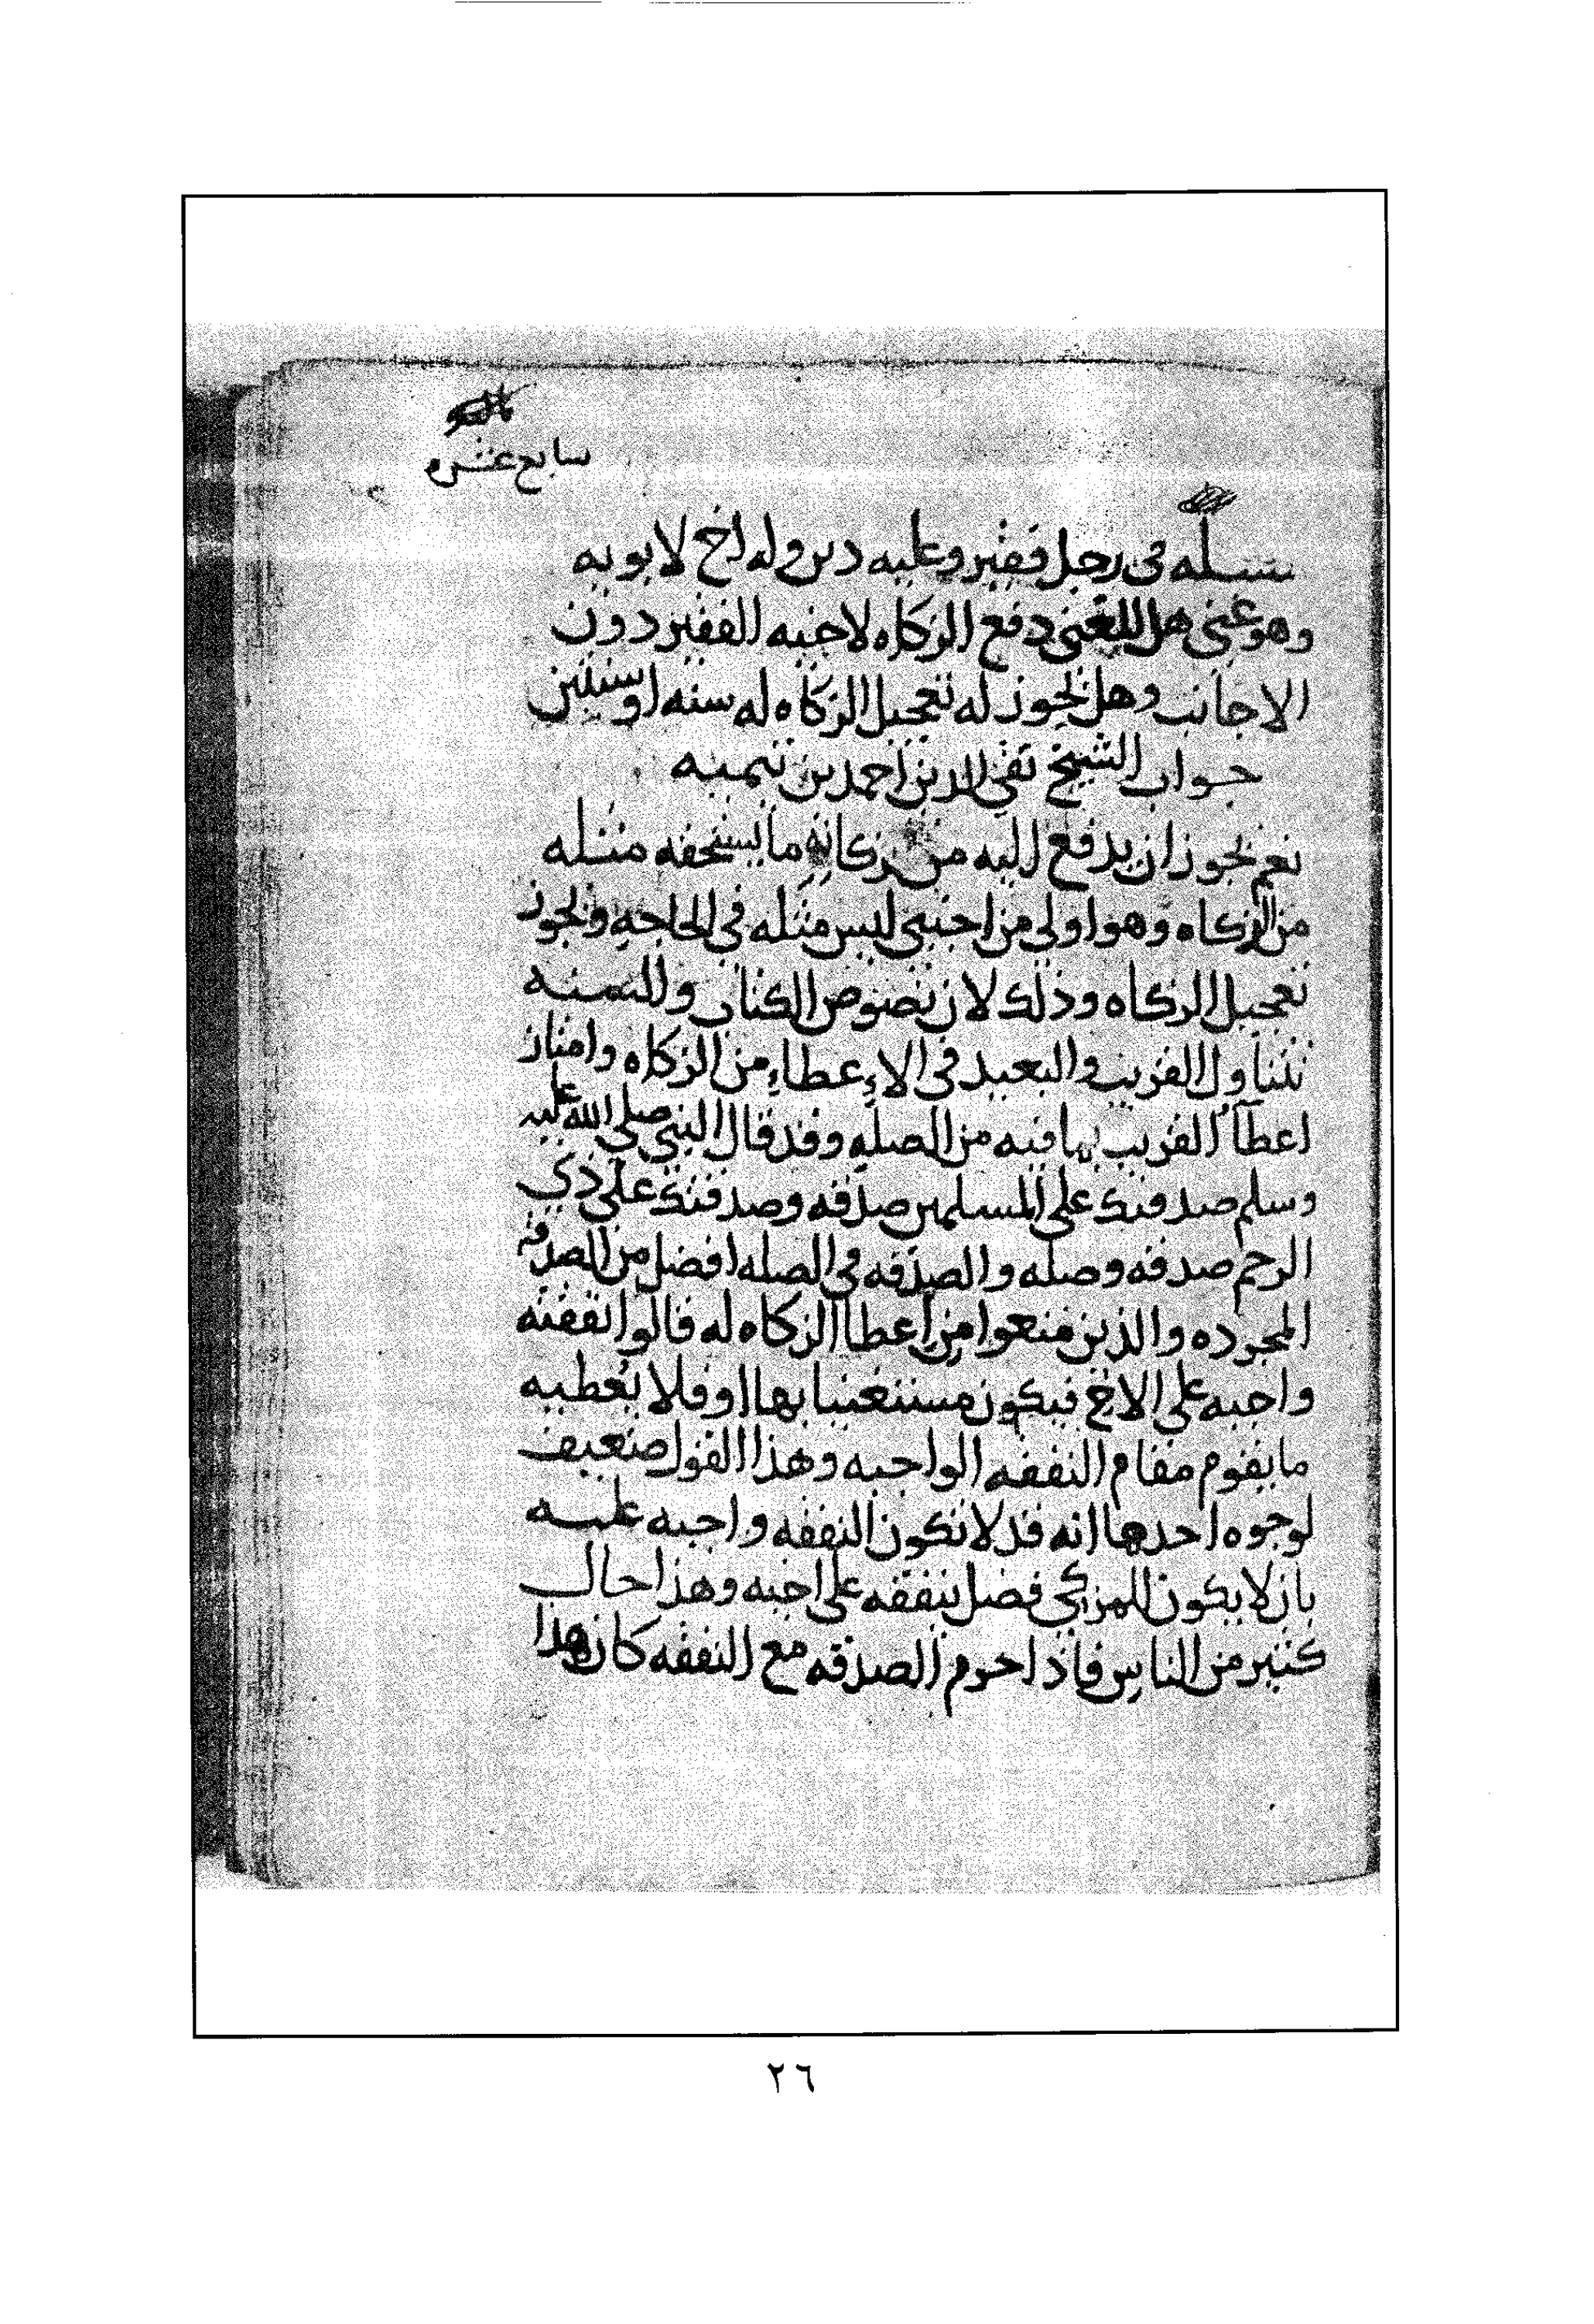 سابع عشره
مسله في رجل فقير وعليه دين وله اخ لابويه
وهو غني هل للغني دفع الزكاه لاخيه الفقير دون
الاجانب وهل يجوز له تعجيل الزكاه له سنه او سنتين
جواب الشيخ تقي الدين احمد بن تيميه
نعم يجوز ان يدفع اليه من زكاته ما يستحقه مثله
من الزكاه وهو اولي من اجنبي ليس مثله في الحاجه ويجوز
تعجيل الزكاه وذلك لان نصوص الكتاب والسنه
تتناول القريب والبعيد في الإعطاء من الزكاه وامتاز
اعطآء القريب بما فيه من الصله وقد قال النبي صلي الله عليه
وسلم صدقتك علي المسلمين صدقه وصدقتك علي ذي
الرحم صدقه وصله والصدقه في الصله افضل من الصدقه
المجرده والذين منعوا من إعطا الزكاه له قالوا نفقته
واجبه علي الاخ فيكون مستغنيا بها او فلا يعطيه
ما يقوم مقام النفقه الواجبه وهذا القول ضعيف
لوجوه احدها انه قد لا تكون النفقه واجبه عليه
بان لا يكون للمزكي فضل ينفقه علي اخيه وهذا حال
كثير من الناس فاذا حرم الصدقه مع النفقه كان هذا
٢٦